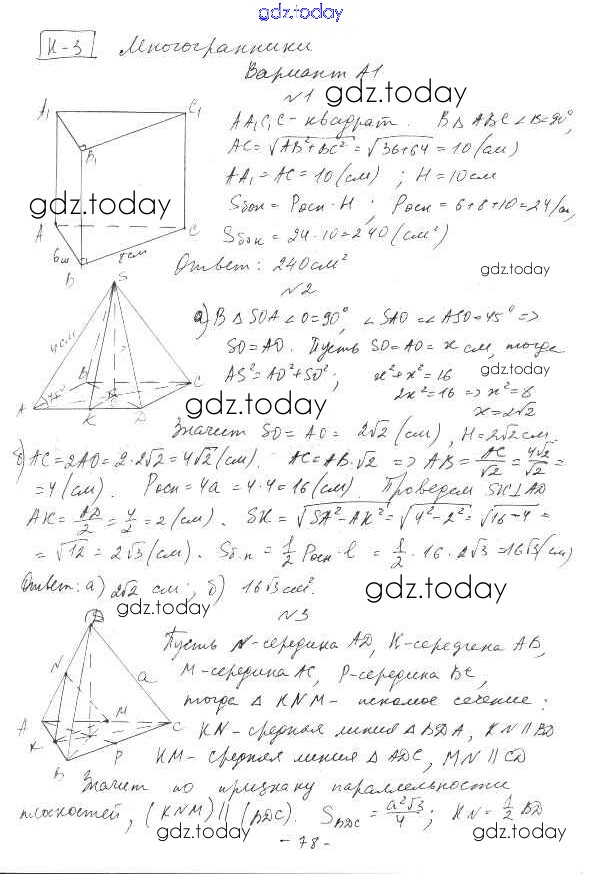 gdz.today
К-3 Многогранники
Вариант А1
№1
gdz.today
AA₁C₁C - квадрат. В △ABC ∠B=90°,
AC=√AB²+BC² = √36+64 = 10 (см)
AA₁ = AC = 10 (см) ; H = 10 см
Sбок = Pосн · H ; Pосн = 6+8+10=24 (см)
Sбок = 24·10 = 240 (см²)
Ответ: 240 см²
A₁ C₁ B₁
gdz.today
A C
6см 8см
B
gdz.today
№2
S
а) В △SOA ∠O=90°, ∠SAO = ∠ASO=45° =>
SO=AO. Пусть SO=AO=x см, тогда
AS²=AO²+SO²; x²+x²=16
2x²=16 => x²=8
x=2√2
4см
45°
A B C K D
gdz.today
Значит SO = AO = 2√2 (см), H=2√2 см.
б) AC=2AO=2·2√2=4√2 (см). AC=AB·√2 => AB = AC/√2 = 4√2/√2 =
=4 (см). Pосн = 4a = 4·4 = 16 (см). Проведем SK⊥AD
AK = AD/2 = 4/2 = 2 (см). SK = √SA²-AK² = √4²-2² = √16-4 =
= √12 = 2√3 (см). Sб.п = 1/2 Pосн·l = 1/2 · 16 · 2√3 = 16√3 (см)
Ответ: а) 2√2 см; б) 16√3 см².
gdz.today
gdz.today
№3
D
Пусть N - середина AD, K - середина AB,
M - середина AC, P - середина BC,
тогда △KNM - искомое сечение:
KN - средняя линия △BDA, KN ∥ BD
KM - средняя линия △ADC, MN ∥ CD
N a
A M C
K
B P
Значит по признаку параллельности
плоскостей, (KNM) ∥ (BDC). S BDC = a²√3/4 ; KN = 1/2 BD
gdz.today
gdz.today
- 78 -